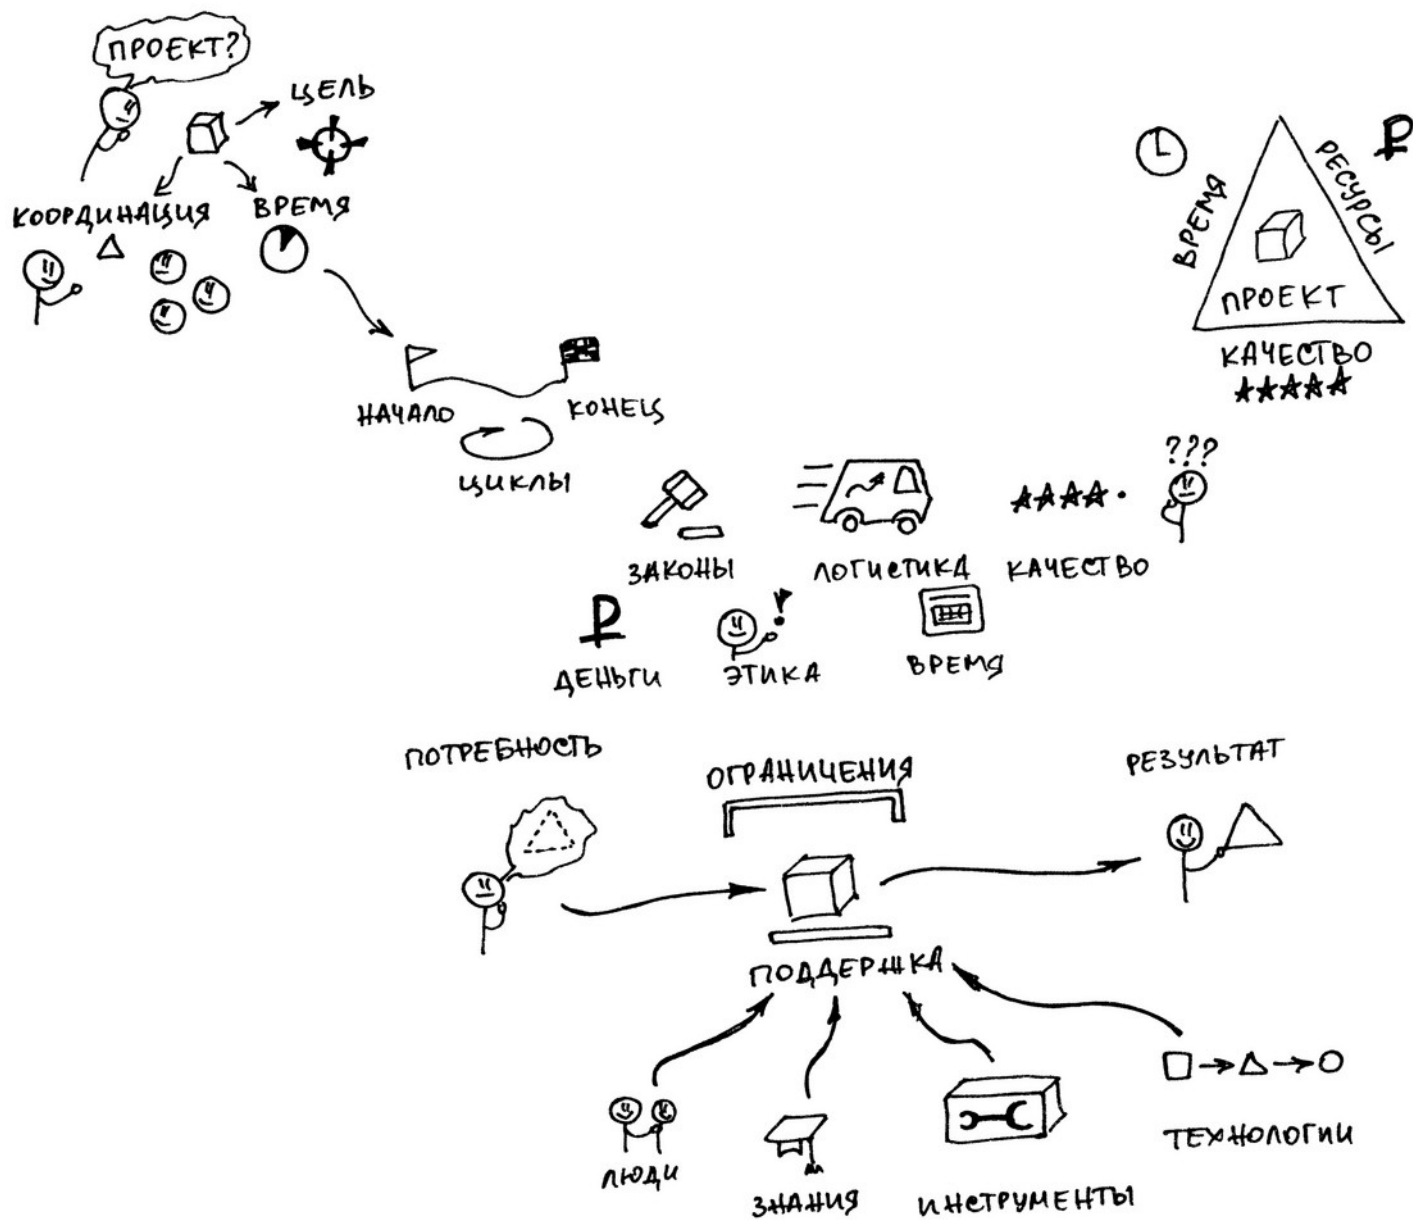 ПРОЕКТ?
ЦЕЛЬ
КООРДИНАЦИЯ
ВРЕМЯ
НАЧАЛО
КОНЕЦ
ЦИКЛЫ
ВРЕМЯ
РЕСУРСЫ
₽
ПРОЕКТ
КАЧЕСТВО
???
ЗАКОНЫ
ЛОГИСТИКА
КАЧЕСТВО
₽
!
ДЕНЬГИ
ЭТИКА
ВРЕМЯ
ПОТРЕБНОСТЬ
ОГРАНИЧЕНИЯ
РЕЗУЛЬТАТ
ПОДДЕРЖКА
ЛЮДИ
ЗНАНИЯ
ИНСТРУМЕНТЫ
ТЕХНОЛОГИИ